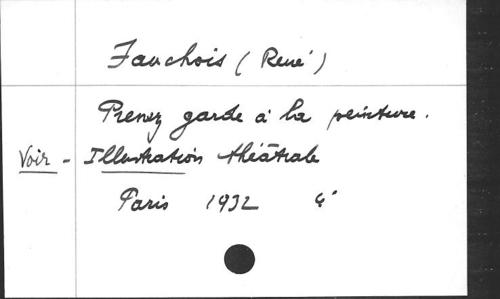 Fauchois (René)
Prenez garde à la peinture.
Voir - Illustration théâtrale
Paris 1932 4°